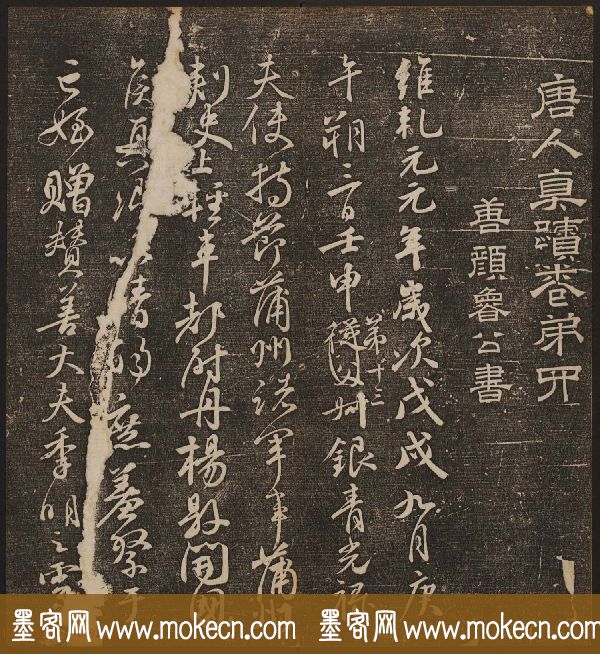 唐人真蹟卷弟四
善顏魯公書
維乾元元年歲次戊戌九月庚
午朔三日壬申第十三從父
銀青光祿
夫使持節蒲州諸軍事蒲州
刺史上輕車都尉丹楊縣開國
侯真卿以清酌庶羞祭于
亡姪贈贊善大夫季明之靈
墨客网 www.mokecn.com 墨客网 www.mokecn.com